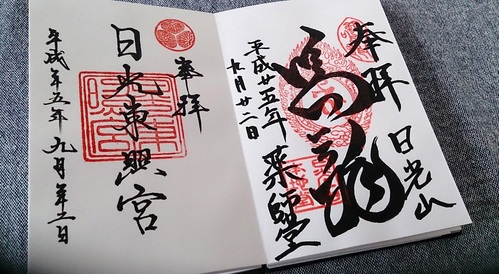 奉拝
日光山
鳴龍
薬師堂
平成廿五年
九月廿二日
奉拝
日光東照宮
平成廿五年九月廿二日